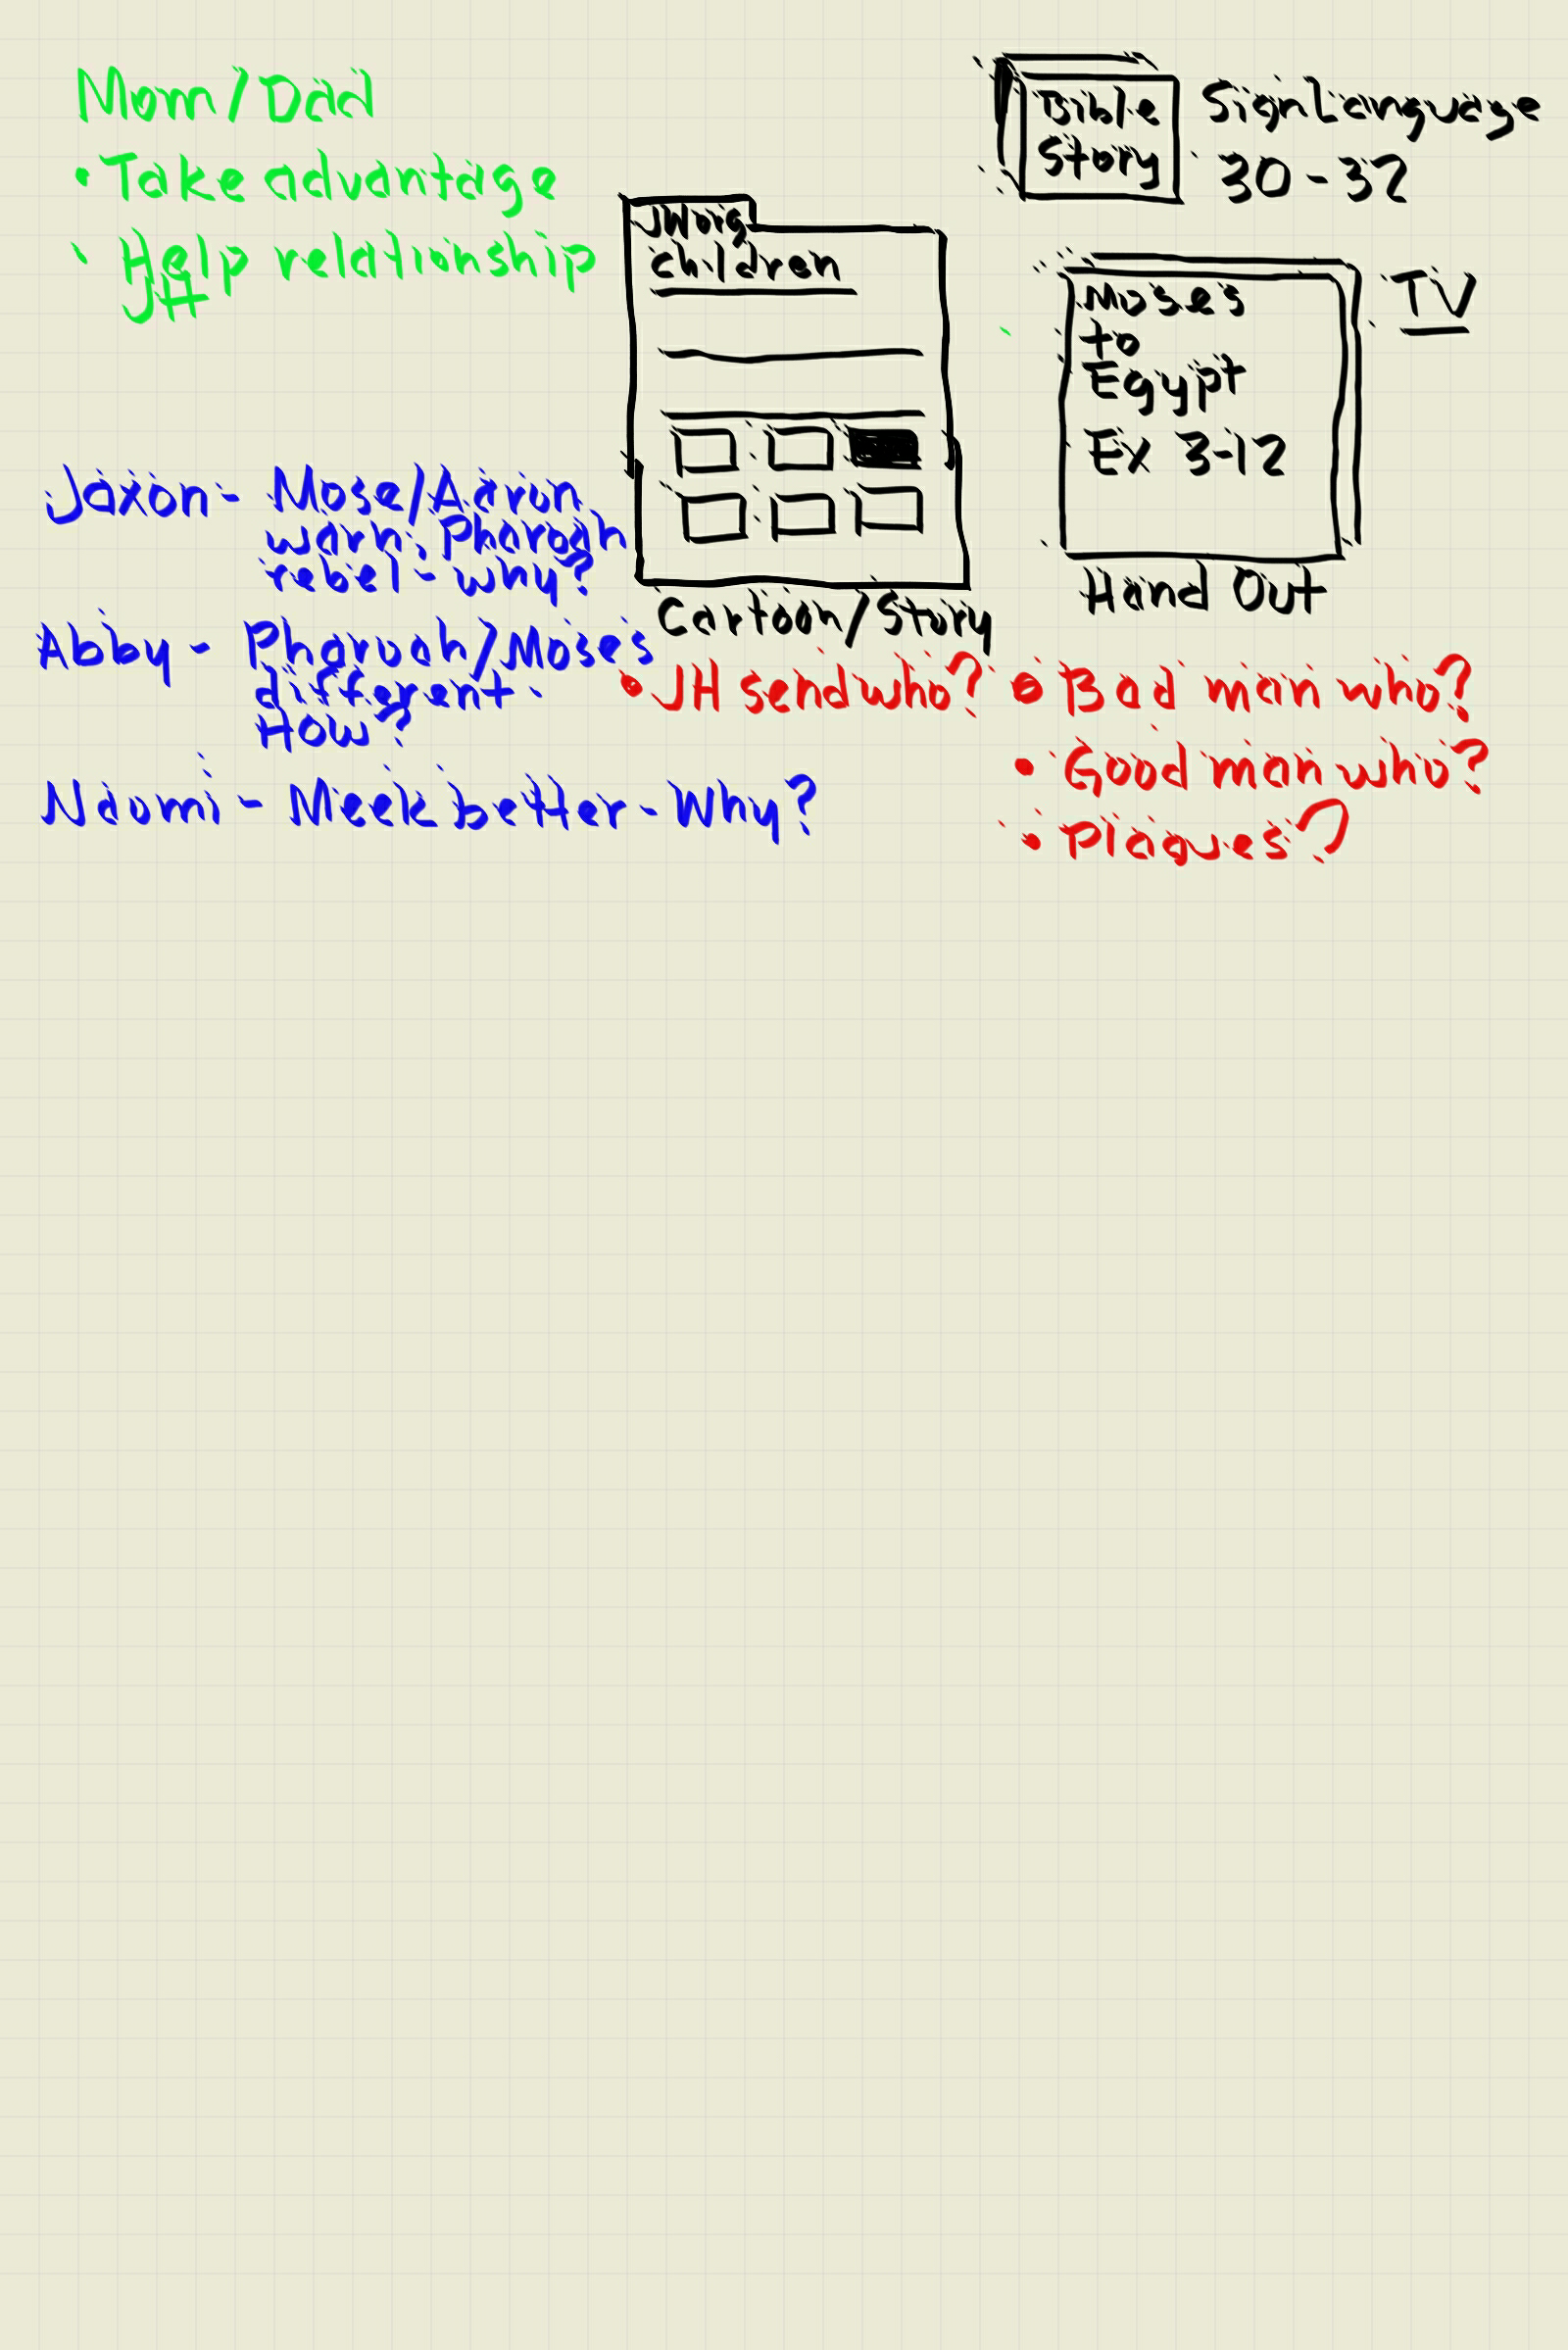 Mom/Dad
• Take advantage
• Help relationship
JH
Bible
Story
Sign Language
30-32
JWorg
children
Cartoon/Story
Moses
to
Egypt
Ex 3-12
TV
Hand Out
Jaxon - Mose/Aaron
warn, Pharoah
rebel - why?
Abby - Pharoah/Moses
different -
How?
Naomi - Meek better - Why?
• JH send who?
• Bad man who?
• Good man who?
• Plagues?